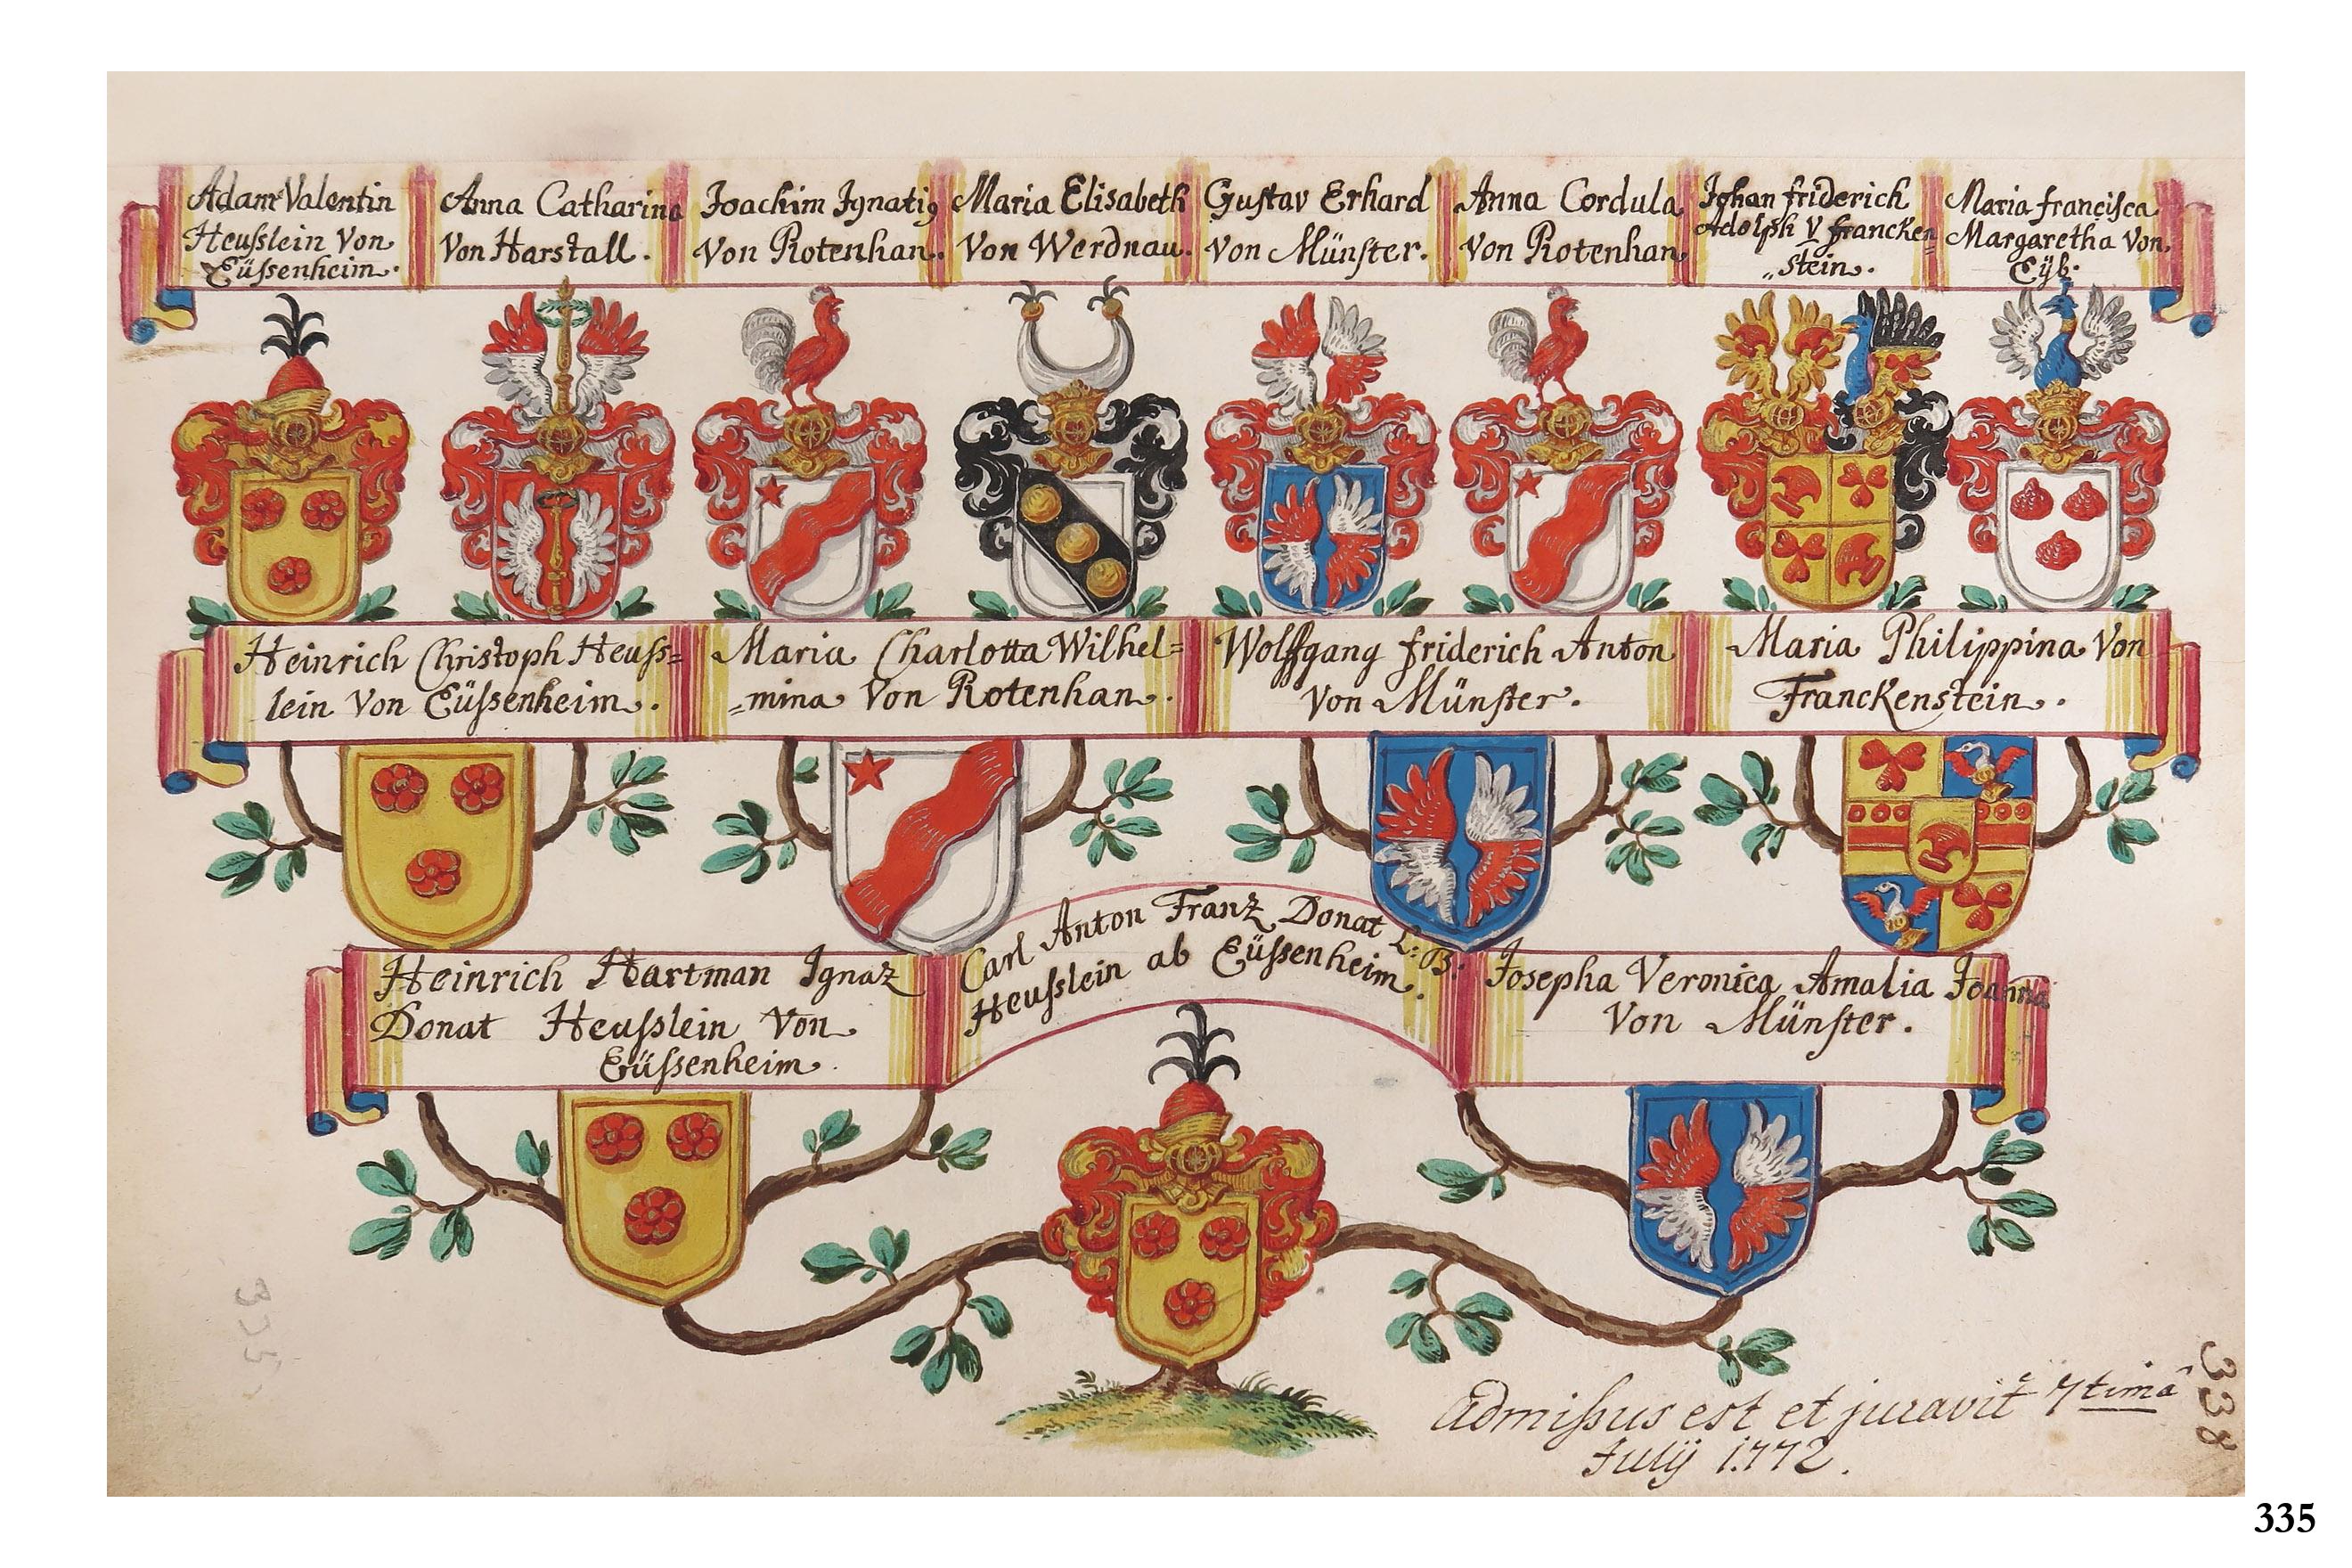 Adam Valentin
Heusslein Von
Eüssenheim.
Anna Catharina
Von Harstall.
Joachim Ignatig
Von Rotenhan.
Maria Elisabeth
Von Werdnau.
Gustav Erhard
Von Münster.
Anna Cordula
Von Rotenhan
Johan friderich
Adolph V francken
„stein.
Maria francisca
Margaretha Von
Eÿb.
Heinrich Christoph Heuss=
lein Von Eüssenheim.
Maria Charlotta Wilhel=
=mina Von Rotenhan.
Wolffgang friderich Anton
Von Münster.
Maria Philippina Von
Franckenstein.
Heinrich Hartman Ignaz
Donat Heusslein Von
Eüssenheim.
Carl Anton Franz Donat L: B:
Heusslein ab Eüssenheim.
Josepha Veronica Amalia Joanna
Von Münster.
admissus est et juravit 7timâ
Julÿ 1772.
335
338
335